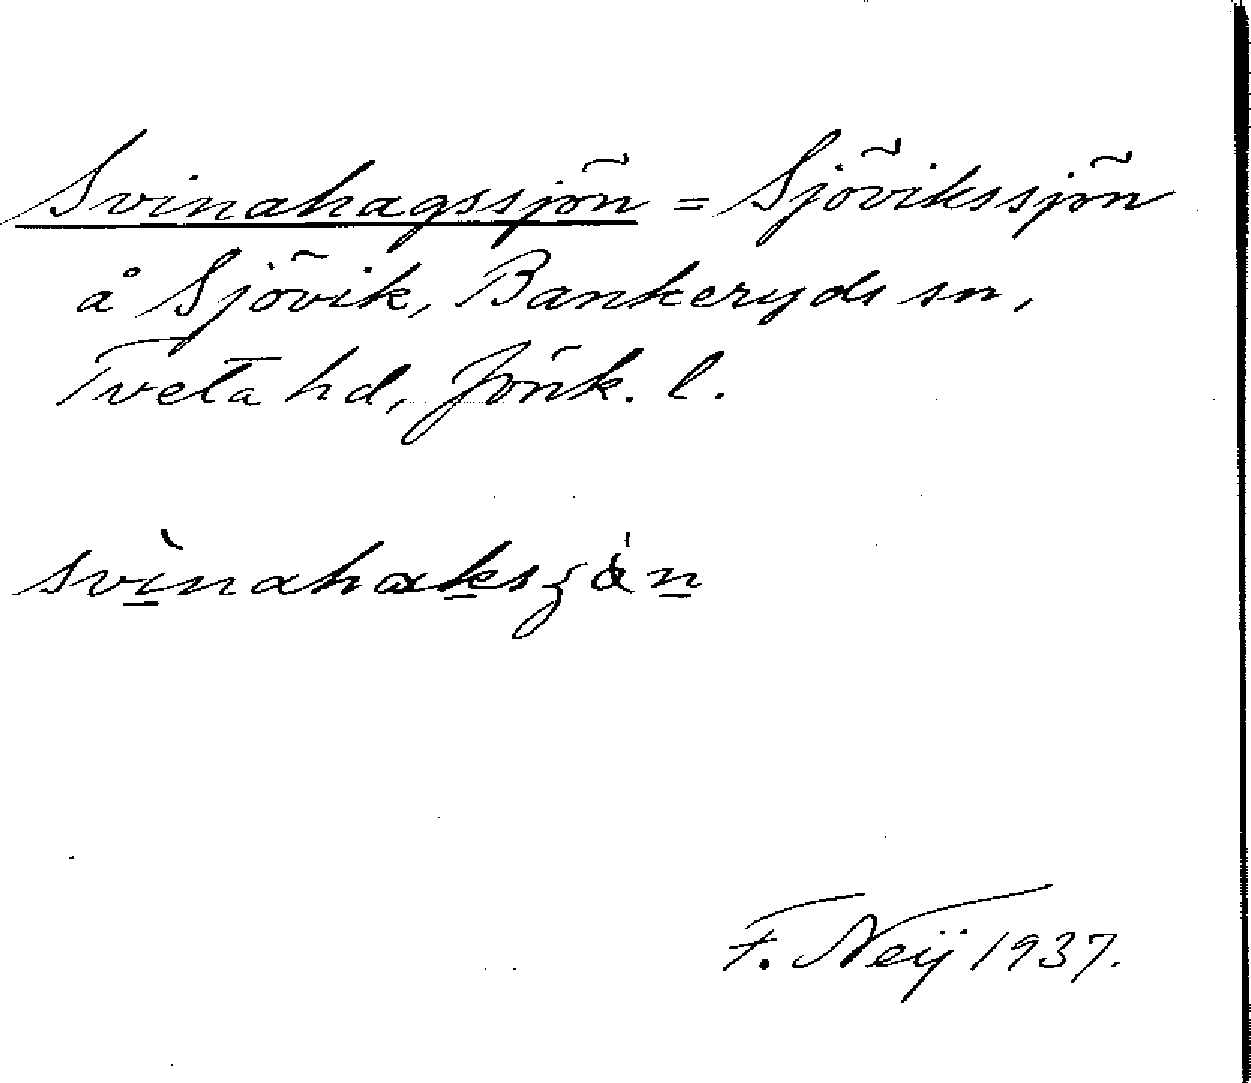 Svinahagssjön = Sjövikssjön
å Sjövik, Bankeryds sn,
Tveta hd, Jönk. l.
F. Neij 1937.